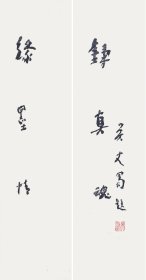 鑄真魂
吴丈蜀題
緣墨情